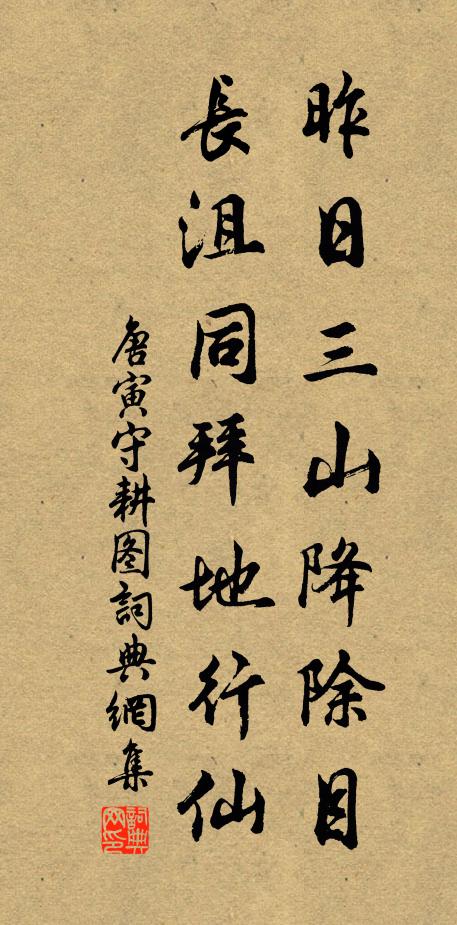 昨日三山降除目
長沮同拜地行仙
唐寅守耕图詞典網集
詞典网印